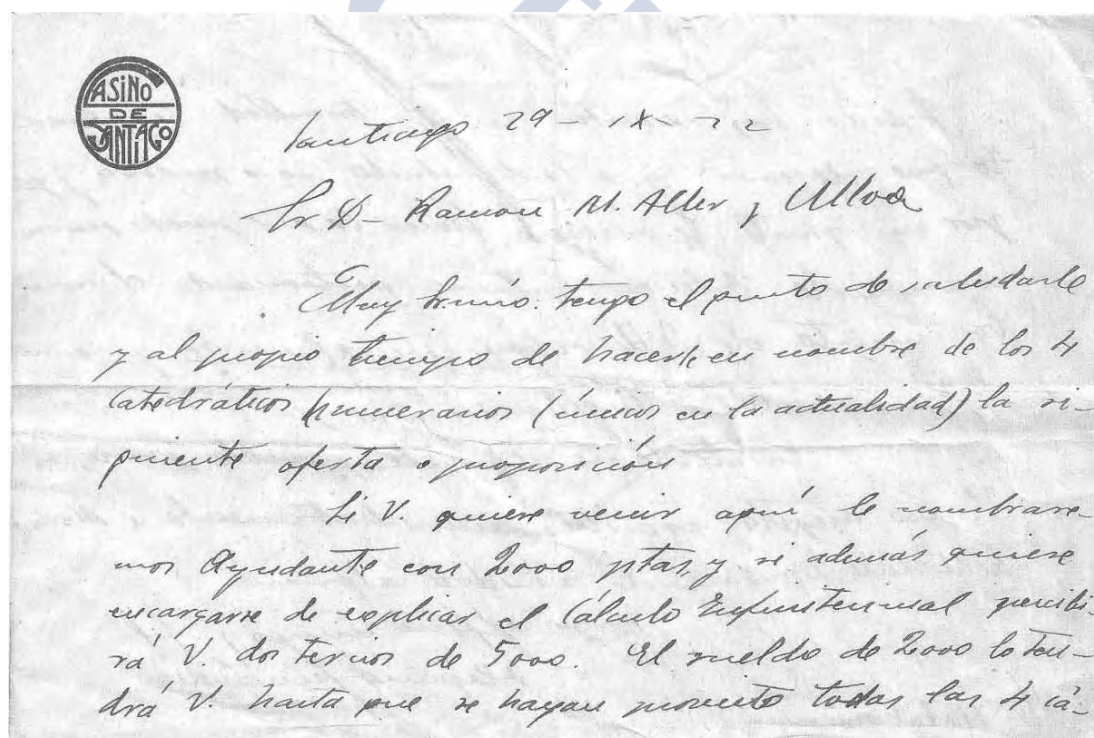 CASINO
DE
SANTIAGO
Santiago 29-IX-22
Sr D- Ramon M. Aller y Ulloa
Muy Sr. mío: tengo el gusto de saludarle
y al propio tiempo de hacerle en nombre de los 4
Catedráticos numerarios (únicos en la actualidad) la si-
guiente oferta o proposición
Si V. quiere venir aquí le nombrare-
mos Ayudante con 2000 ptas, y si además quiere
encargarse de explicar el Cálculo Infinitesimal percibi-
rá V. dos tercios de 5000. El sueldo de 2000 lo ten-
drá V. hasta que se hayan provisto todas las 4 cá-